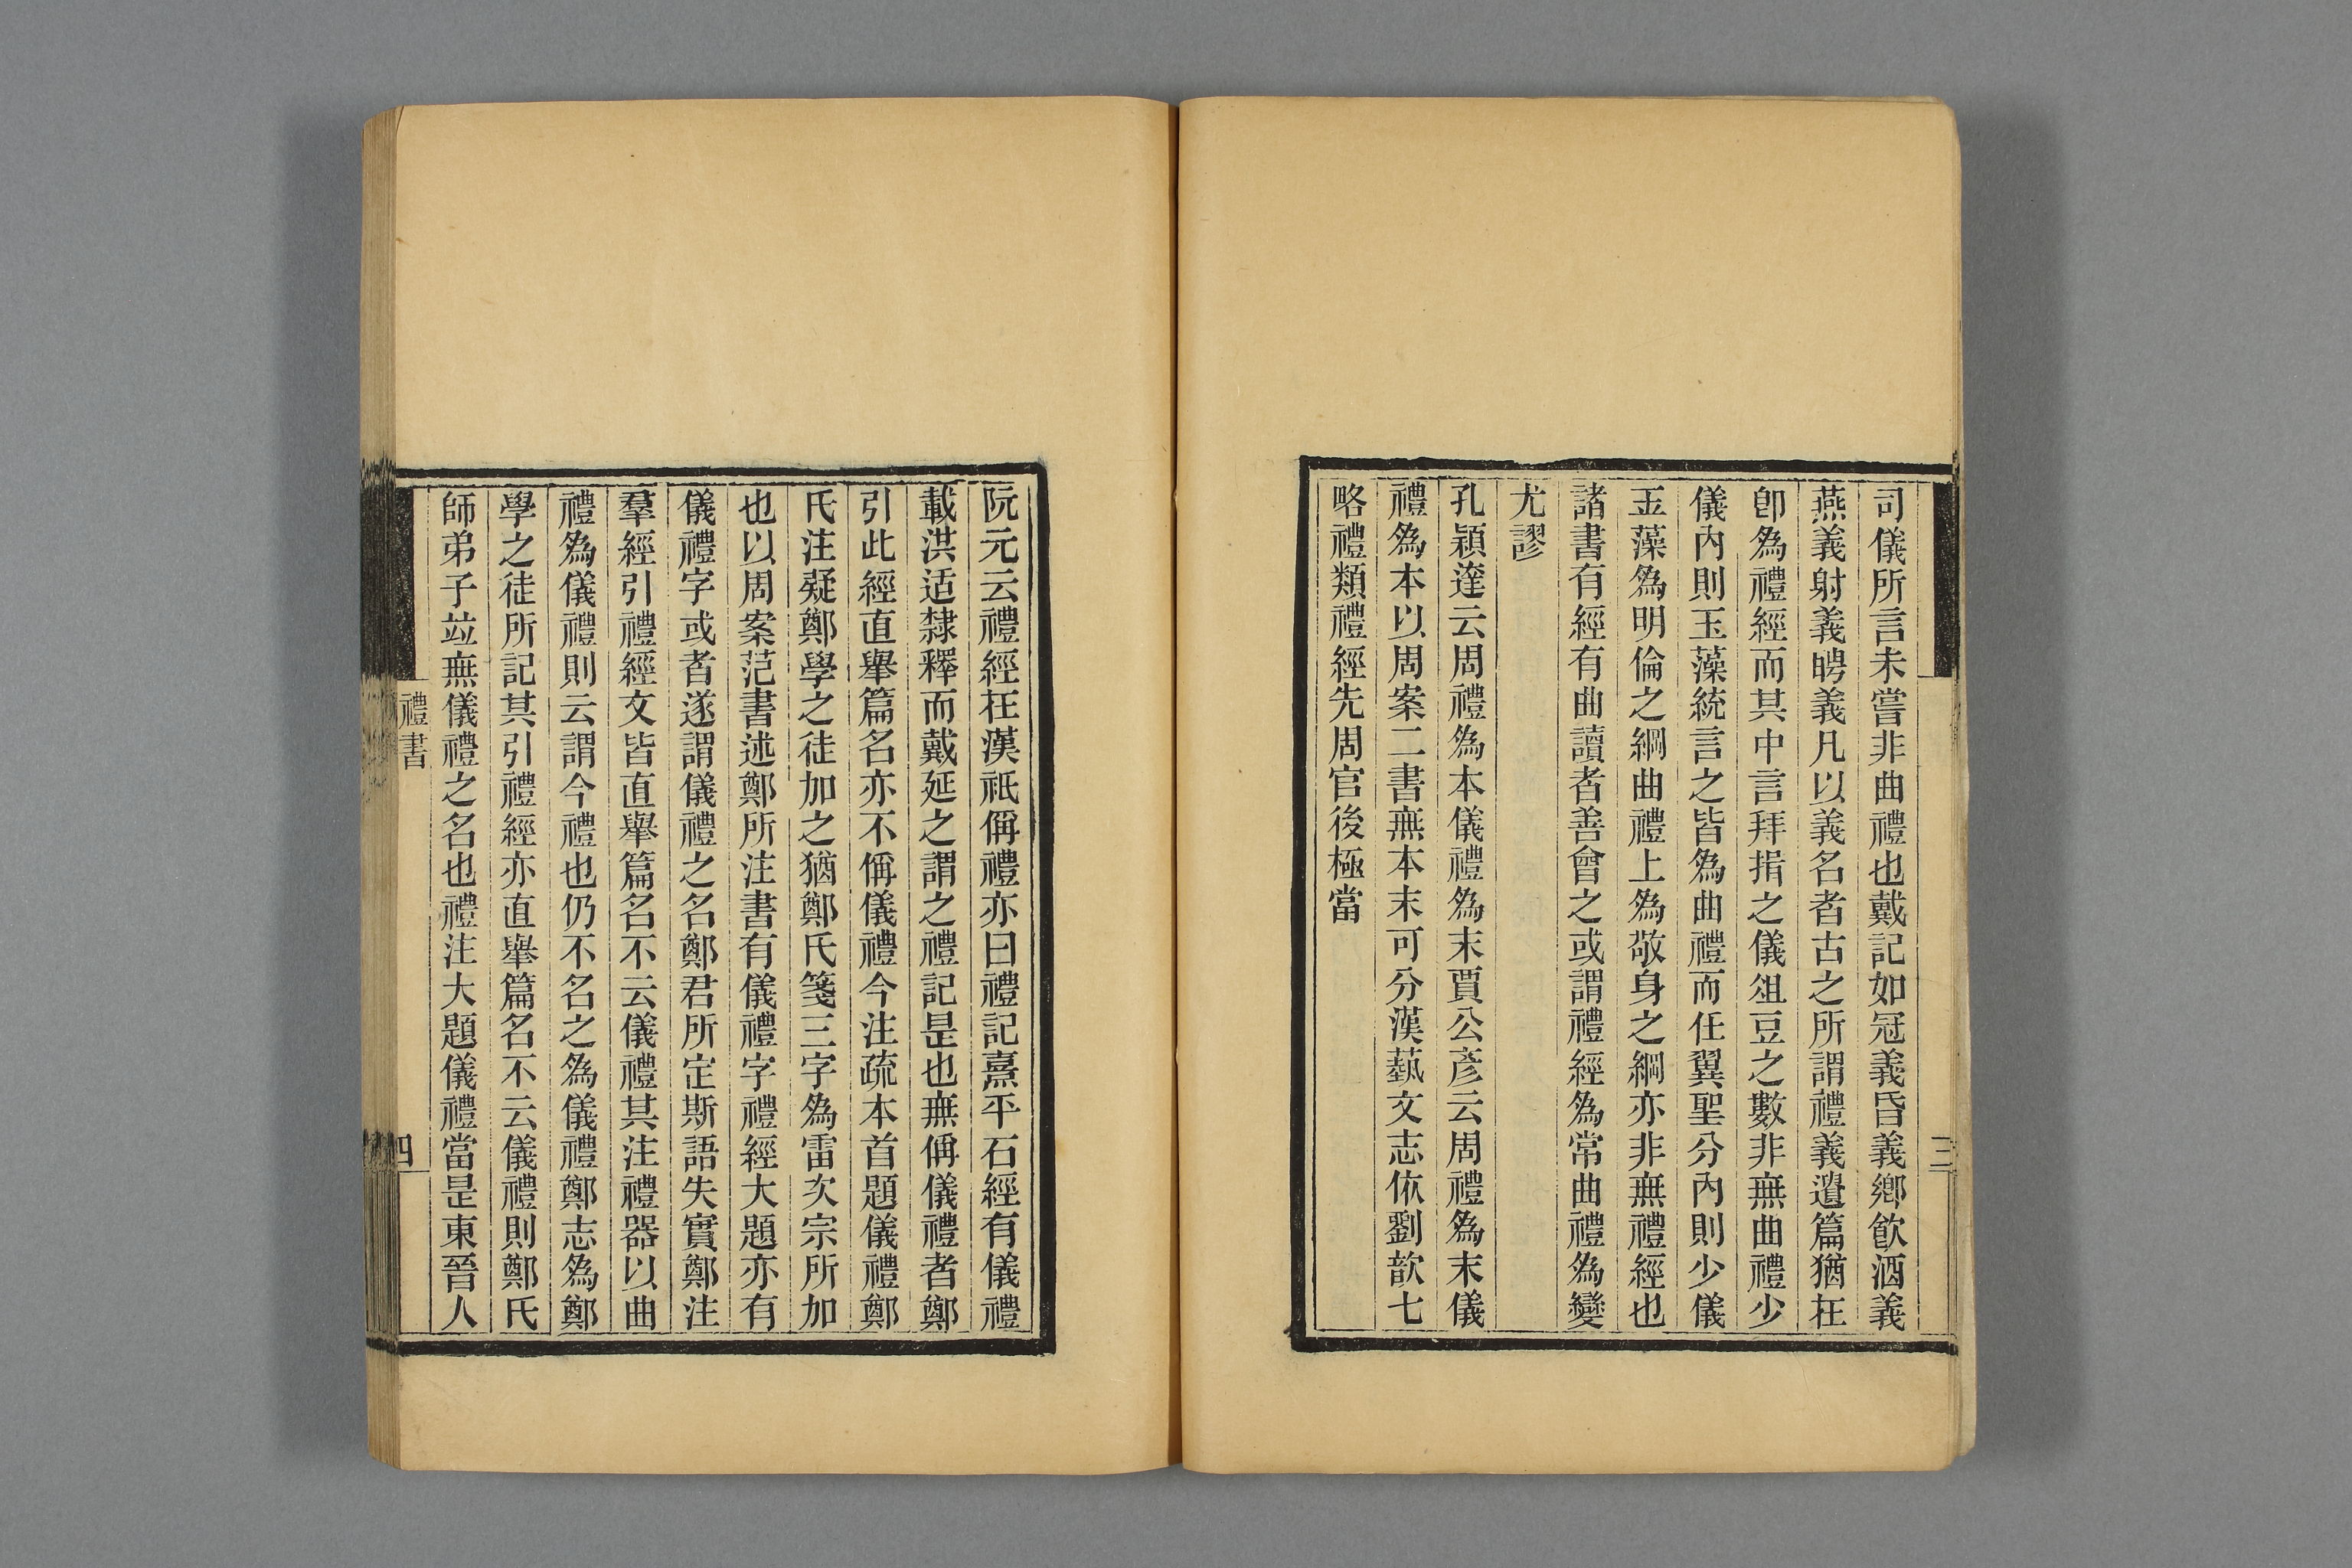 司儀所言未嘗非曲禮也戴記如冠義昏義鄉飮酒義
燕義射義聘義凡以義名者古之所謂禮義遺篇猶在
卽為禮經而其中言拜揖之儀俎豆之數非無曲禮少
儀內則玉藻統言之皆為曲禮而任翼聖分內則少儀
玉藻為明倫之綱曲禮上為敬身之綱亦非無禮經也
諸書有經有曲讀者善會之或謂禮經為常曲禮為變
尤謬
孔穎達云周禮為本儀禮為末賈公彥云周禮為末儀
禮為本以周案二書無本末可分漢蓺文志依劉歆七
略禮類禮經先周官後極當
三
阮元云禮經在漢祇偁禮亦曰禮記熹平石經有儀禮
載洪适隸釋而戴延之謂之禮記是也無偁儀禮者鄭
引此經直舉篇名亦不偁儀禮今注疏本首題儀禮鄭
氏注疑鄭學之徒加之猶鄭氏箋三字為雷次宗所加
也以周案范書述鄭所注書有儀禮字禮經大題亦有
儀禮字或者遂謂儀禮之名鄭君所定斯語失實鄭注
羣經引禮經文皆直舉篇名不云儀禮其注禮器以曲
禮為儀禮則云謂今禮也仍不名之為儀禮鄭志為鄭
學之徒所記其引禮經亦直舉篇名不云儀禮則鄭氏
師弟子竝無儀禮之名也禮注大題儀禮當是東晉人
禮書
四